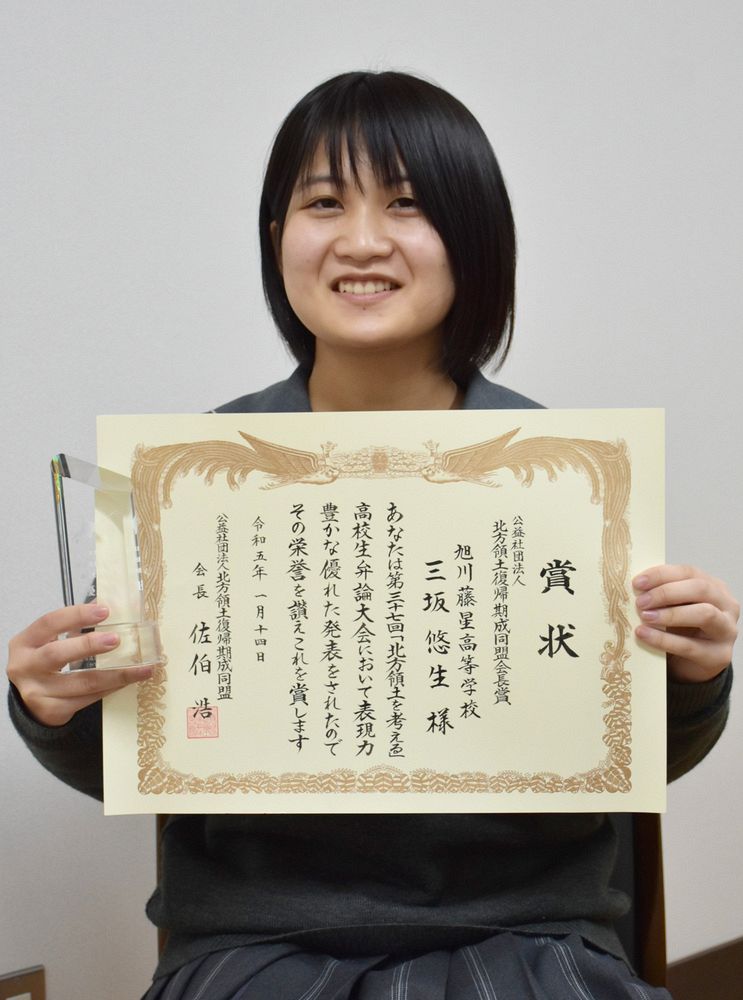 賞状
公益社団法人
北方領土復帰期成同盟会長賞
旭川藤星高等学校
三坂悠生様
あなたは第三十七回「北方領土を考える」
高校生弁論大会において表現力
豊かな優れた発表をされたので
その栄誉を讃えこれを賞します
令和五年 一月十四日
公益社団法人北方領土復帰期成同盟
会長 佐伯浩